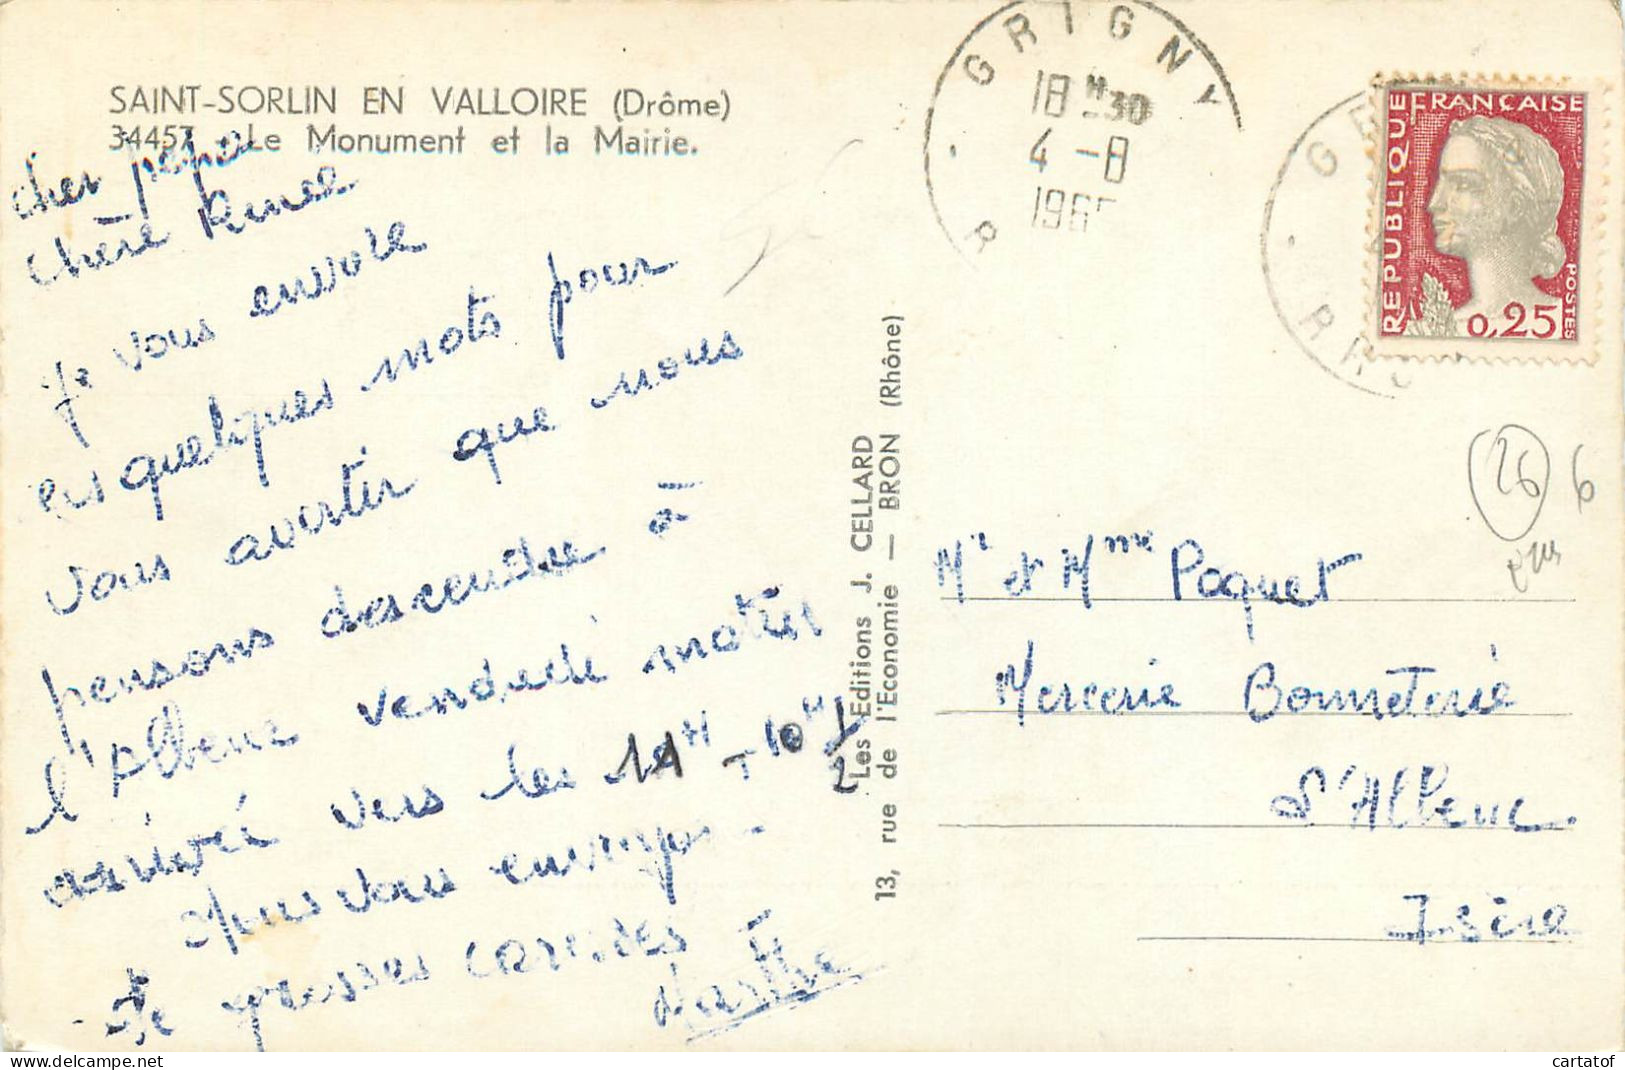 SAINT-SORLIN EN VALLOIRE (Drôme)
34457 - Le Monument et la Mairie.
cher papa
chère Renée
je vous envoie
ces quelques mots pour
vous avertir que nous
pensons descendre à
l'Albenc vendredi matin
arrivée vers les 11H - 10H 1/2
Nous vous envoyons
de grosses caresses
Marthe
Les Editions J. CELLARD
13, rue de l'Economie — BRON (Rhône)
GRIGNY
18H30
4-8
196
R
REPUBLIQUE FRANCAISE
POSTES
0,25
G
R
26
6
Mr et Mme Paquet
Mercerie Bonneterie
L'Albenc
Isère
cartatof